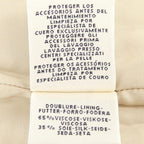 PROTEGER LOS
ACCESORIOS ANTES DEL
MANTENIMIENTO
LIMPIEZA EN
ESPECIALISTA DE
CUERO EXCLUSIVAMENTE
PROTEGGERE GLI
ACCESSORI PRIMA
DEL LAVAGGIO
LAVAGGIO PRESSO
CENTRI SPECIALIZZATI
PER LA PELLE
PROTEGER OS ACESSÓRIOS
DOUBLURE-LINING-
FUTTER-FORRO-FODERA
65% VISCOSE-VISKOSE-
VISCOSA
35% SOIE-SILK-SEIDE-
SEDA-SETA